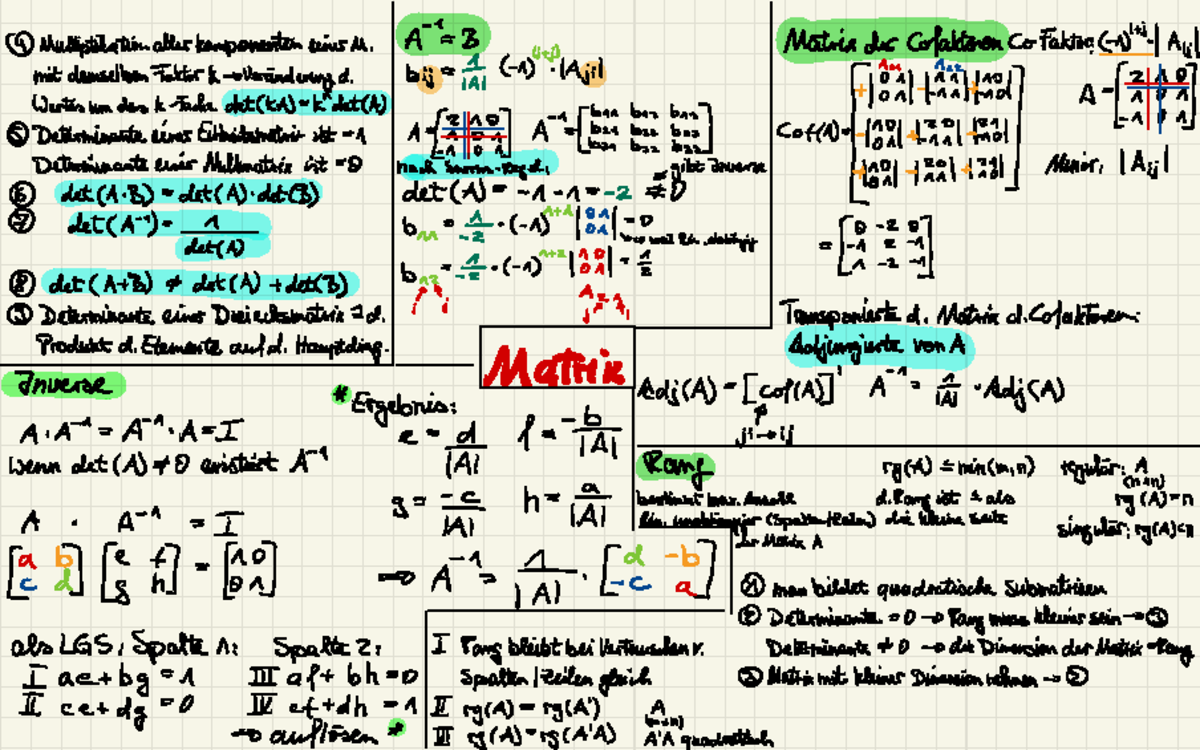 ④ Multiplikation aller Komponenten einer M.
mit demselben Faktor k → Veränderung d.
Wertes um das k-fache det(kA) = kⁿ det(A)
⑤ Determinante einer Einheitsmatrix ist = 1
Determinante einer Nullmatrix ist = 0
⑥ det(A·B) = det(A)·det(B)
⑦ det(A⁻¹) = 1/det(A)
⑧ det(A+B) ≠ det(A) + det(B)
⑨ Determinante einer Dreiecksmatrix = d.
Produkt d. Elemente auf d. Hauptdiag.
A⁻¹ = B
b_ij = 1/|A| (-1)^(i+j) · |A_ji|
A = [2 1 0; 1 0 1; -1 0 1] A⁻¹ = [b₁₁ b₁₂ b₁₃; b₂₁ b₂₂ b₂₃; b₃₁ b₃₂ b₃₃]
nach Sarrus-Regel: gibt Inverse
det(A) = -1 - 1 = -2 ≠ 0
b₁₁ = 1/-2 · (-1)^(1+1) |0 1; 0 1| = 0
b₁₂ = 1/-2 · (-1)^(1+2) |1 0; 0 1| = 1/2
Matrix der Cofaktoren Cofaktor: (-1)^(i+j) · |A_ij|
A = [2 1 0; 1 0 1; -1 0 1]
Cof(A) = [+|0 1; 0 1| -|1 1; -1 1| +|1 0; -1 0|; -|1 0; 0 1| +|2 0; -1 1| -|2 1; -1 0|; +|1 0; 0 1| -|2 0; 1 1| +|2 1; 1 0|]
Minor: |A_ij|
= [0 -2 0; -1 2 -1; 1 -2 -1]
Transponierte d. Matrix d. Cofaktoren:
Adjungierte von A
Adj(A) = [cof(A)]' A⁻¹ = 1/|A| · Adj(A)
ji → ij
Matrix
Inverse
A · A⁻¹ = A⁻¹ · A = I
Wenn det(A) ≠ 0 existiert A⁻¹
A · A⁻¹ = I
[a b; c d] [e f; g h] = [1 0; 0 1]
als LGS: Spalte 1: Spalte 2:
I ae + bg = 1 III af + bh = 0
II ce + dg = 0 IV cf + dh = 1
→ auflösen *
* Ergebnis:
e = d/|A| f = -b/|A|
g = -c/|A| h = a/|A|
⇒ A⁻¹ = 1/|A| · [d -b; -c a]
Rang
rg(A) ≤ min(m,n) regulär: A (n×n)
bestimmt max. Anzahl d. Rang ist ≤ als rg(A) = n
lin. unabhängiger (Spalten/Zeilen) die kleine Seite singulär: rg(A) < n
der Matrix A
① man bildet quadratische Submatrizen
② Determinante = 0 → Rang muss kleiner sein → ③
Determinante ≠ 0 → die Dimension der Matrix = Rang
③ Matrix mit kleiner Dimension nehmen → ②
I Rang bleibt bei Vertauschen v.
Spalten/Zeilen gleich
II rg(A) = rg(A') A (m×n)
III rg(A) = rg(A'A) A'A quadratisch